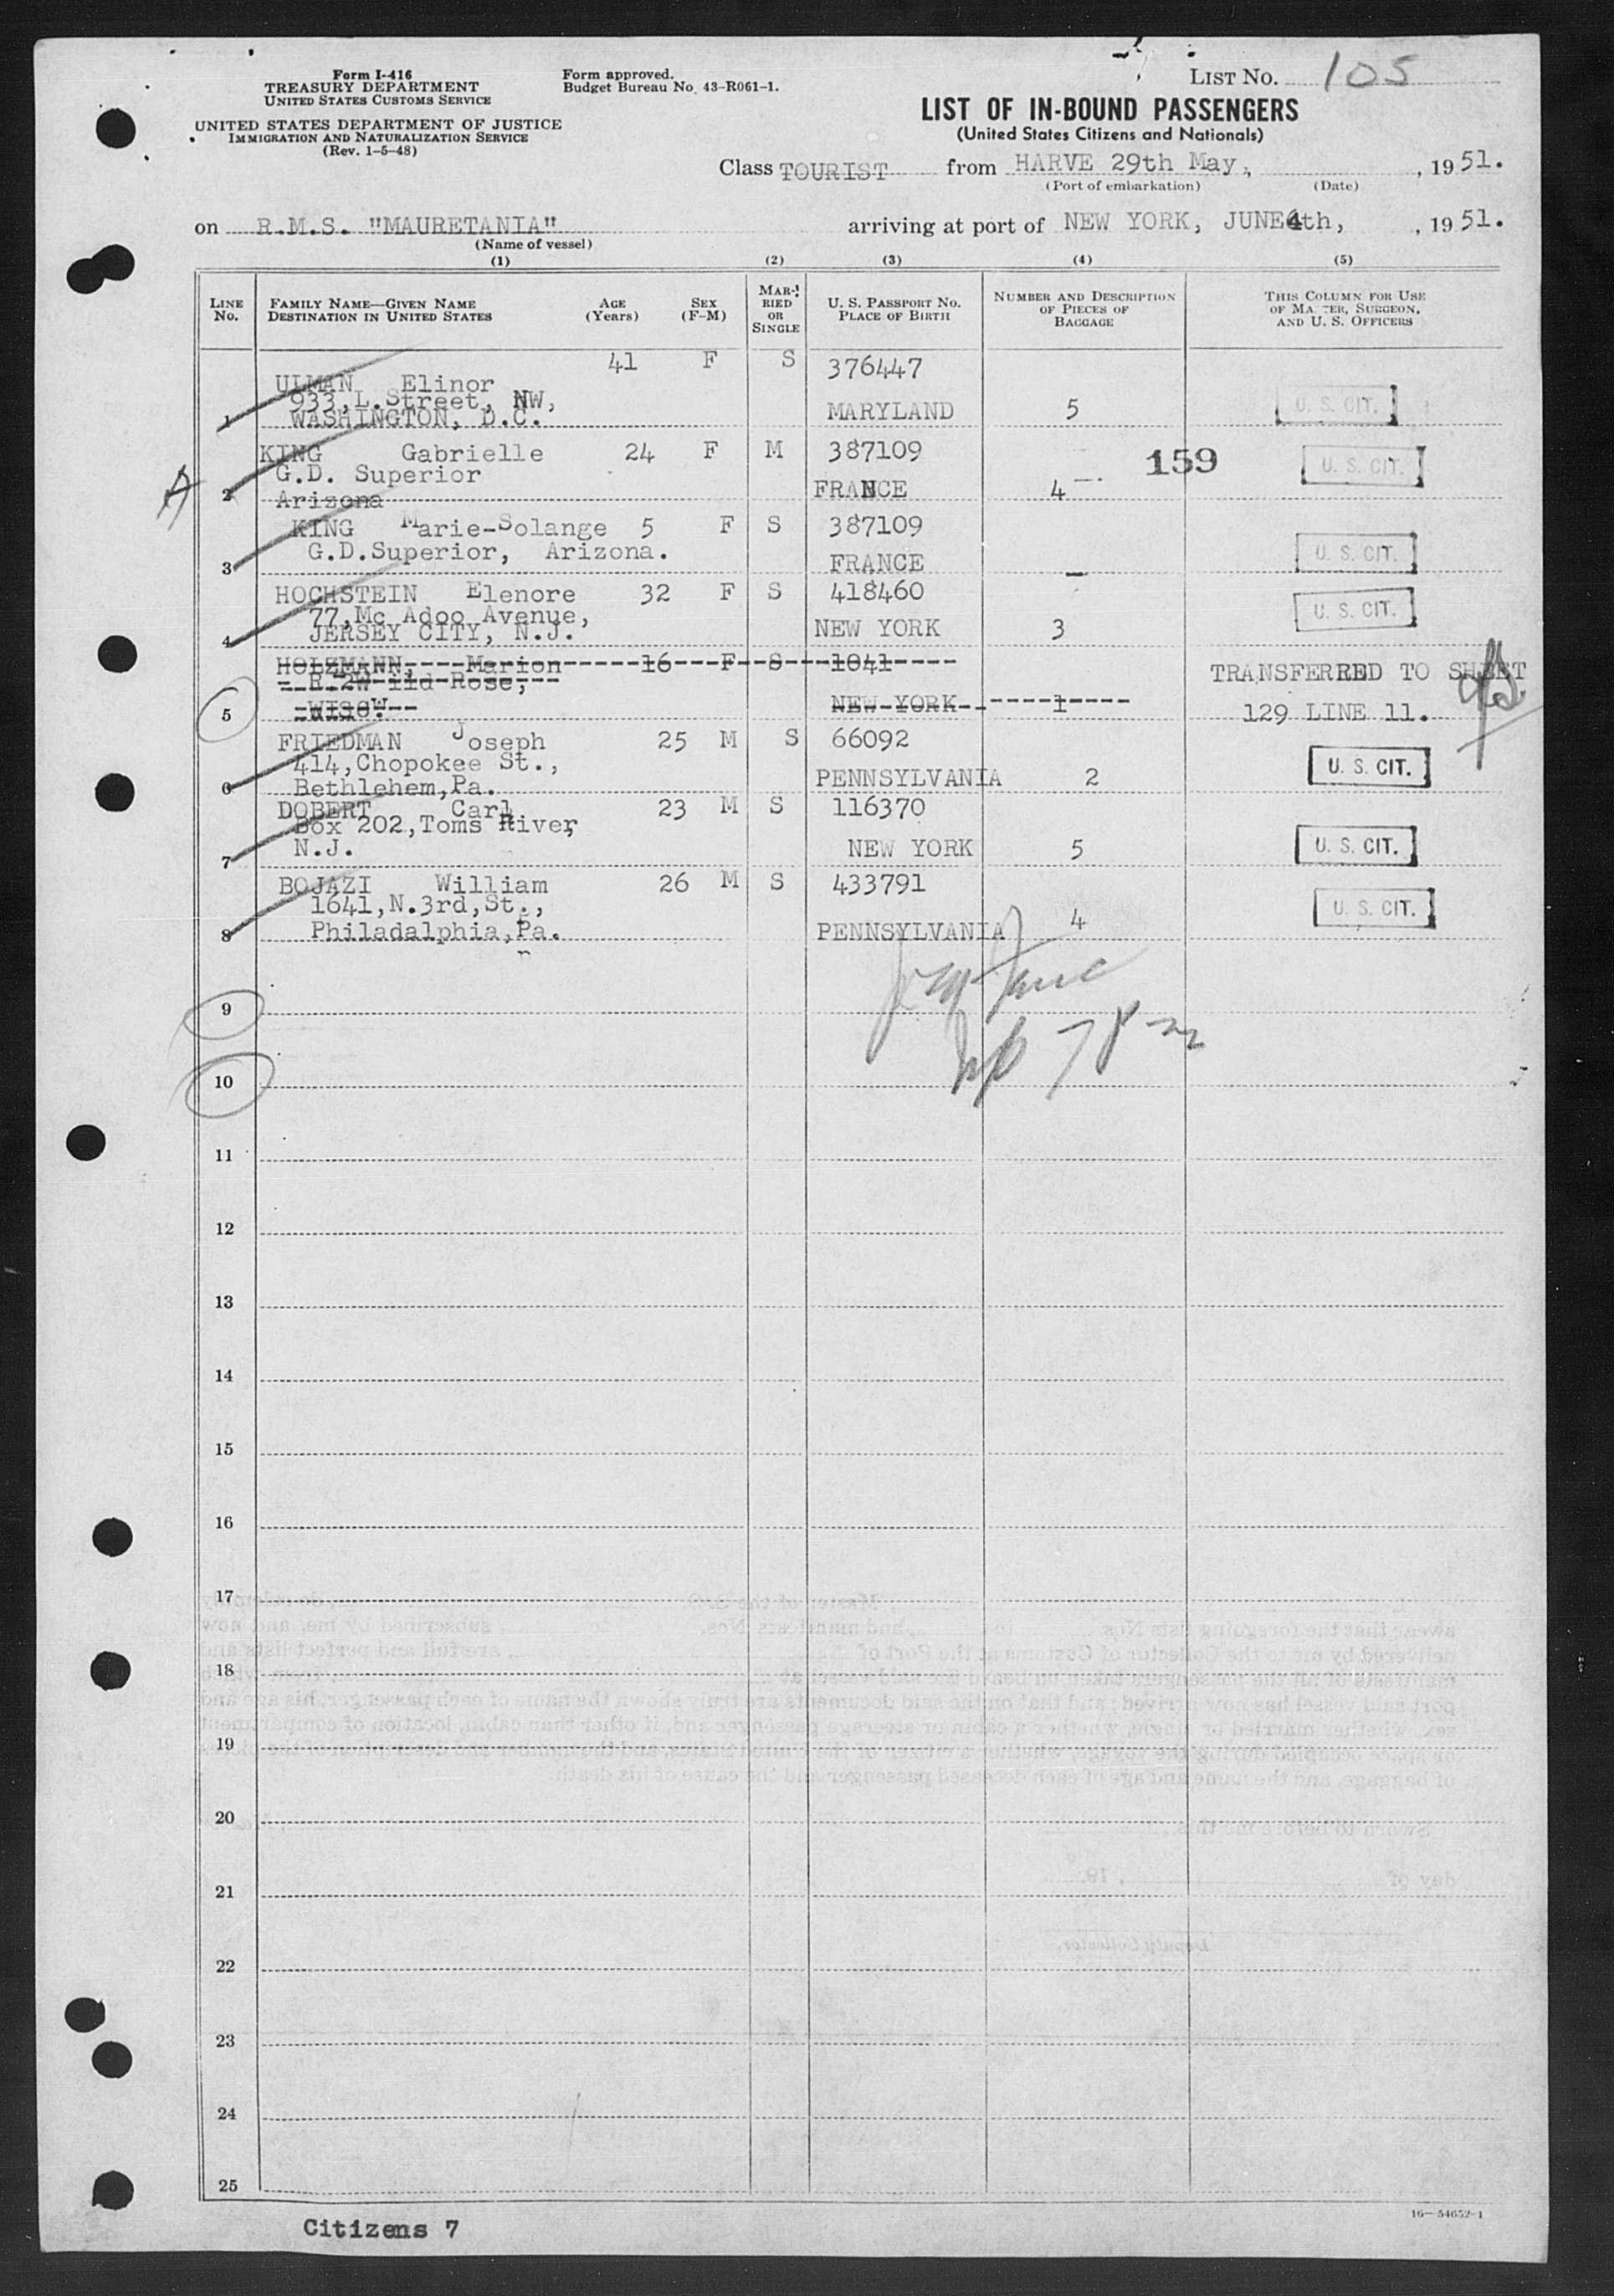 Form I-416
TREASURY DEPARTMENT
UNITED STATES CUSTOMS SERVICE
UNITED STATES DEPARTMENT OF JUSTICE
IMMIGRATION AND NATURALIZATION SERVICE
(Rev. 1-5-48)
Form approved.
Budget Bureau No. 43-R061-1.
LIST NO. 105
LIST OF IN-BOUND PASSENGERS
(United States Citizens and Nationals)
Class TOURIST from HARVE 29th May, , 19 51.
(Port of embarkation) (Date)
on R.M.S. "MAURETANIA" arriving at port of NEW YORK, JUNE 4th, , 19 51.
(Name of vessel)
(1) (2) (3) (4) (5)
LINE No. FAMILY NAME—GIVEN NAME DESTINATION IN UNITED STATES AGE (Years) SEX (F-M) MARRIED OR SINGLE U. S. PASSPORT NO. PLACE OF BIRTH NUMBER AND DESCRIPTION OF PIECES OF BAGGAGE THIS COLUMN FOR USE OF MASTER, SURGEON, AND U. S. OFFICERS
41 F S 376447
ULMAN Elinor
933,L.Street, NW,
1 WASHINGTON, D.C. MARYLAND 5 U. S. CIT.
KING Gabrielle 24 F M 387109
G.D. Superior 159 U. S. CIT.
2 Arizona FRANCE 4
KING Marie-Solange 5 F S 387109
G.D.Superior, Arizona.
3 FRANCE — U. S. CIT.
HOCHSTEIN Elenore 32 F S 418460
77,Mc Adoo Avenue,
4 JERSEY CITY, N.J. NEW YORK 3 U. S. CIT.
HOLZMANN, Marion 16 F S 1041
R.2W ild Rose, TRANSFERRED TO SHEET
5 WISC. NEW YORK 1 129 LINE 11.
FRIEDMAN Joseph 25 M S 66092
414,Chopokee St.,
6 Bethlehem,Pa. PENNSYLVANIA 2 U. S. CIT.
DOBERT Carl 23 M S 116370
Box 202,Toms River,
7 N.J. NEW YORK 5 U. S. CIT.
BOJAZI William 26 M S 433791
1641,N.3rd,St.,
8 Philadalphia,Pa. PENNSYLVANIA 4 U. S. CIT.
9
10
11
12
13
14
15
16
17
18
19
20
21
22
23
24
25
16—54652-1
Citizens 7